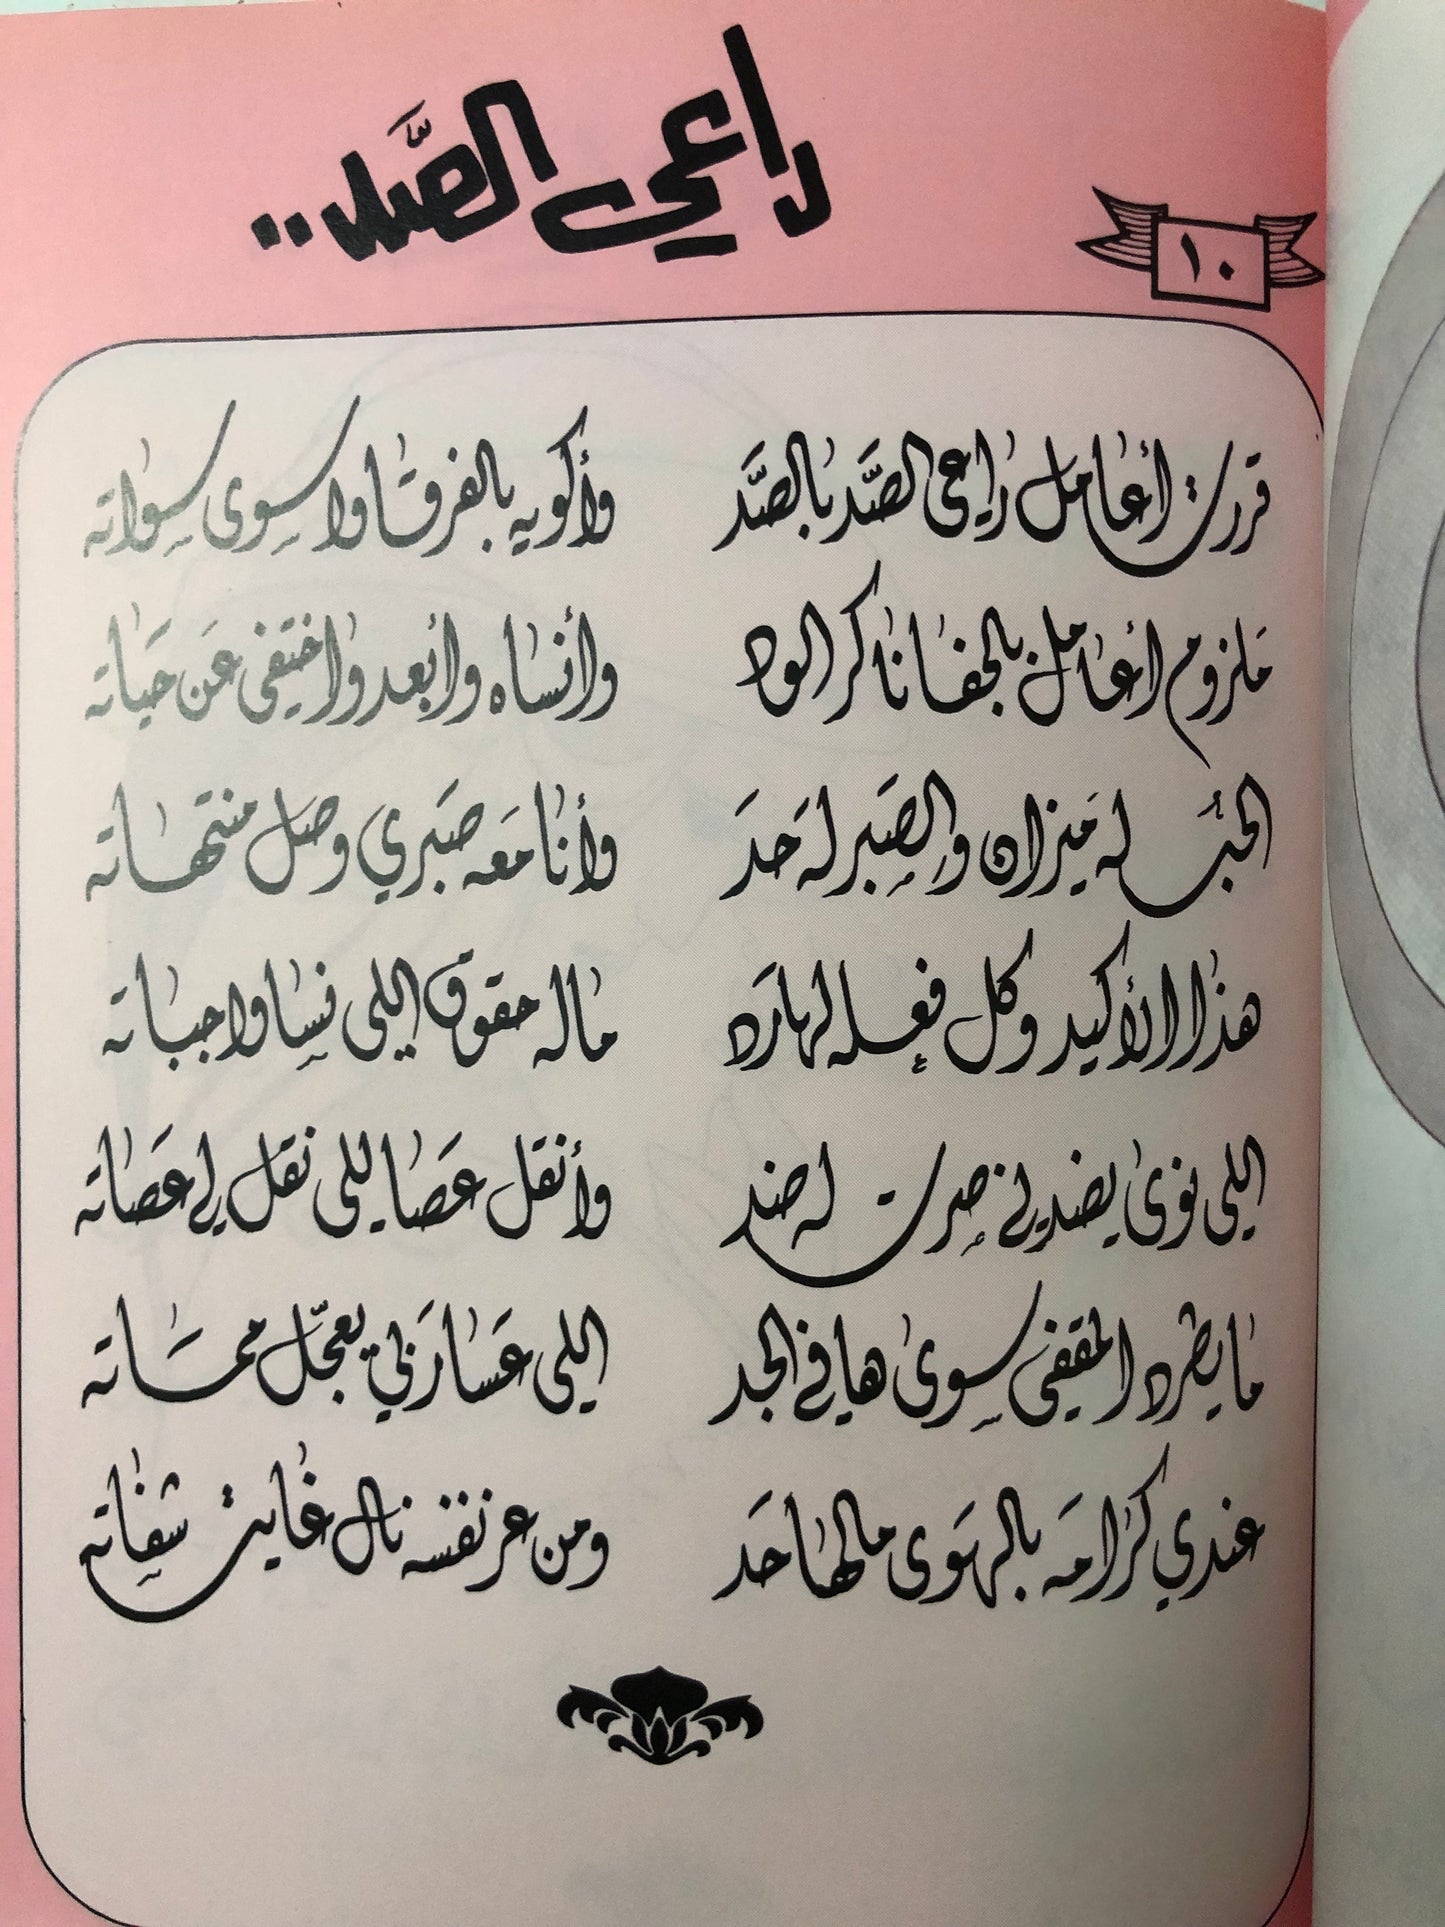 راعي الصَّد..
١٠
قررت أعامل راعي الصَّد بالصَّد وأكويه بالفرقا واسوي سواته
ملزوم أعامل بالجفا ناكر الود وأنساه وأبعد واختفي عن حياته
الحب له ميزان والصبر له حد وأنا معه صبري وصل منتهاته
هذا الأكيد وكل فعله لها رد ماله حقوق اللي نسا واجباته
اللي نوى يضدني صرت له ضد وأنقل عصا يللي نقل لي عصاته
ما يطرد المقفي سوى هافي الجد اللي عسا ربي يعجّل مماته
عندي كرامه بالهوى ما لها حد ومن عز نفسه نال غايت شفاته